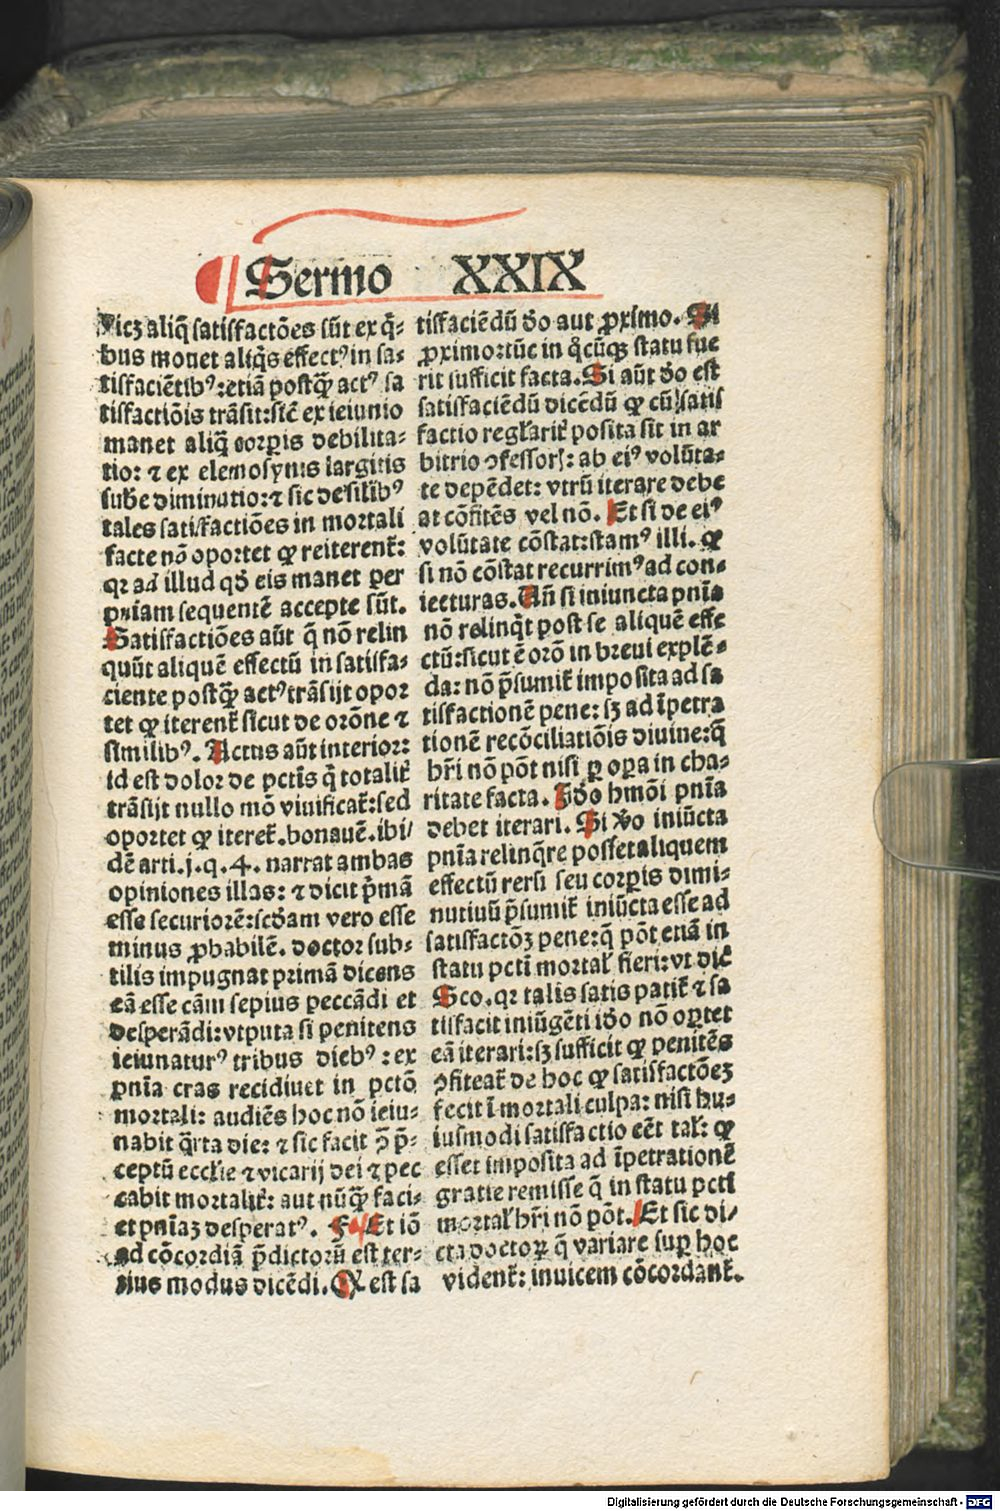 Sermo XXIX
dicꝫ aliq̄ satisfactōes sūt ex q̄⸗
bus mouet aliq̄s effectꝰ in sa⸗
tisfaciētibꝰ: etiā postq̄ꝫ actꝰ sa
tisfactiōis trāsit: sic̄ ex ieiunio
manet aliq̄ corꝑis debilita⸗
tio: ⁊ ex elemosynis largitis
sub̄e diminutio: ⁊ sic de silibꝰ
tales satisfactiōes in mortali
facte nō oportet ꝙ reiterent̄:
qꝛ ad illud qd̄ eis manet per
pn̄iam sequentē accepte sūt.
Satisfactiōes aūt q̄ nō relin
quūt aliquē effectū in satisfa⸗
ciente postq̄ꝫ actꝰ trāsijt opor
tet ꝙ iterent̄ sicut de orōne ⁊
similibꝰ. Actus aūt interior:
id est dolor de pctīs q̄ totalit̄
trāsijt nullo mō viuificat̄: sed
oportet ꝙ iteret̄. bonauē. ibi⸗
dē arti.j.q.4. narrat ambas
opiniones illas: ⁊ dicit p̄mā
esse securiorē: scd̄am vero esse
minus ꝓbabilē. doctor sub⸗
tilis impugnat primā dicens
eā esse cām sepius peccādi et
desperādi: vtputa si penitens
ieiunaturꝰ tribus diebꝰ: ex
pn̄ia cras recidiuet in pctō
mortali: audiēs hoc nō ieiu⸗
nabit q̄rta die: ⁊ sic facit ↄ̄ p̄⸗
ceptū eccl̄ie ⁊ vicarij dei ⁊ pec
cabit mortalit̄: aut nūq̄ꝫ faci⸗
et pn̄iaꝫ desperatꝰ. F Et iō
ad cōcordiā p̄dictorū est ter⸗
tius modus dicēdi. Q est sa
tisfaciēdū deo aut ꝓximo. Si
ꝓximo: tūc in q̊cūqꝫ statu fue
rit sufficit facta. Si aūt deo est
satisfaciēdū dicēdū ꝙ cū satis
factio regl̄arit̄ posita sit in ar
bitrio ↄfessoris: ab eiꝰ volūta⸗
te depēdet: vtrū iterare debe
at cōfitēs vel nō. Et si de eiꝰ
volūtate cōstat: stamꝰ illi. ꝙ
si nō cōstat recurrimꝰ ad con⸗
iecturas. Añ si iniuncta pn̄ia
nō relinq̄t post se aliquē effe
ctū: sicut ē orō in breui explē⸗
da: nō p̄sumit̄ imposita ad sa
tisfactionē pene: sꝫ ad īpetra
tionē recōciliatiōis diuine: q̄
hr̄i nō pōt nisi ꝑ oꝑa in cha⸗
ritate facta. Idō hm̄ōi pn̄ia
debet iterari. Si v̄o iniūcta
pn̄ia relinq̄re posset aliquem
effectū rersi seu corꝑis dimi⸗
nutiuū p̄sumit̄ iniūcta esse ad
satisfactōꝫ pene: q̄ pōt etiā in
statu pcti mortal̄ fieri: vt dic̄
Sco. qꝛ talis satis patit̄ ⁊ sa
tisfacit iniūgēti idō nō oꝑtet
eā iterari: sꝫ sufficit ꝙ penitēs
ↄfiteat̄ de hoc ꝙ satisfactōeꝫ
fecit ī mortali culpa: nisi hu⸗
iusmodi satisfactio eēt tal̄: ꝙ
esset imposita ad īpetrationē
gratie remisse q̄ in statu pcti
mortal̄ hr̄i nō pōt. Et sic di⸗
cta doctoꝝ q̄ variare suꝑ hoc
vident̄: inuicem cōcordant̄.
Digitalisierung gefördert durch die Deutsche Forschungsgemeinschaft - DFG